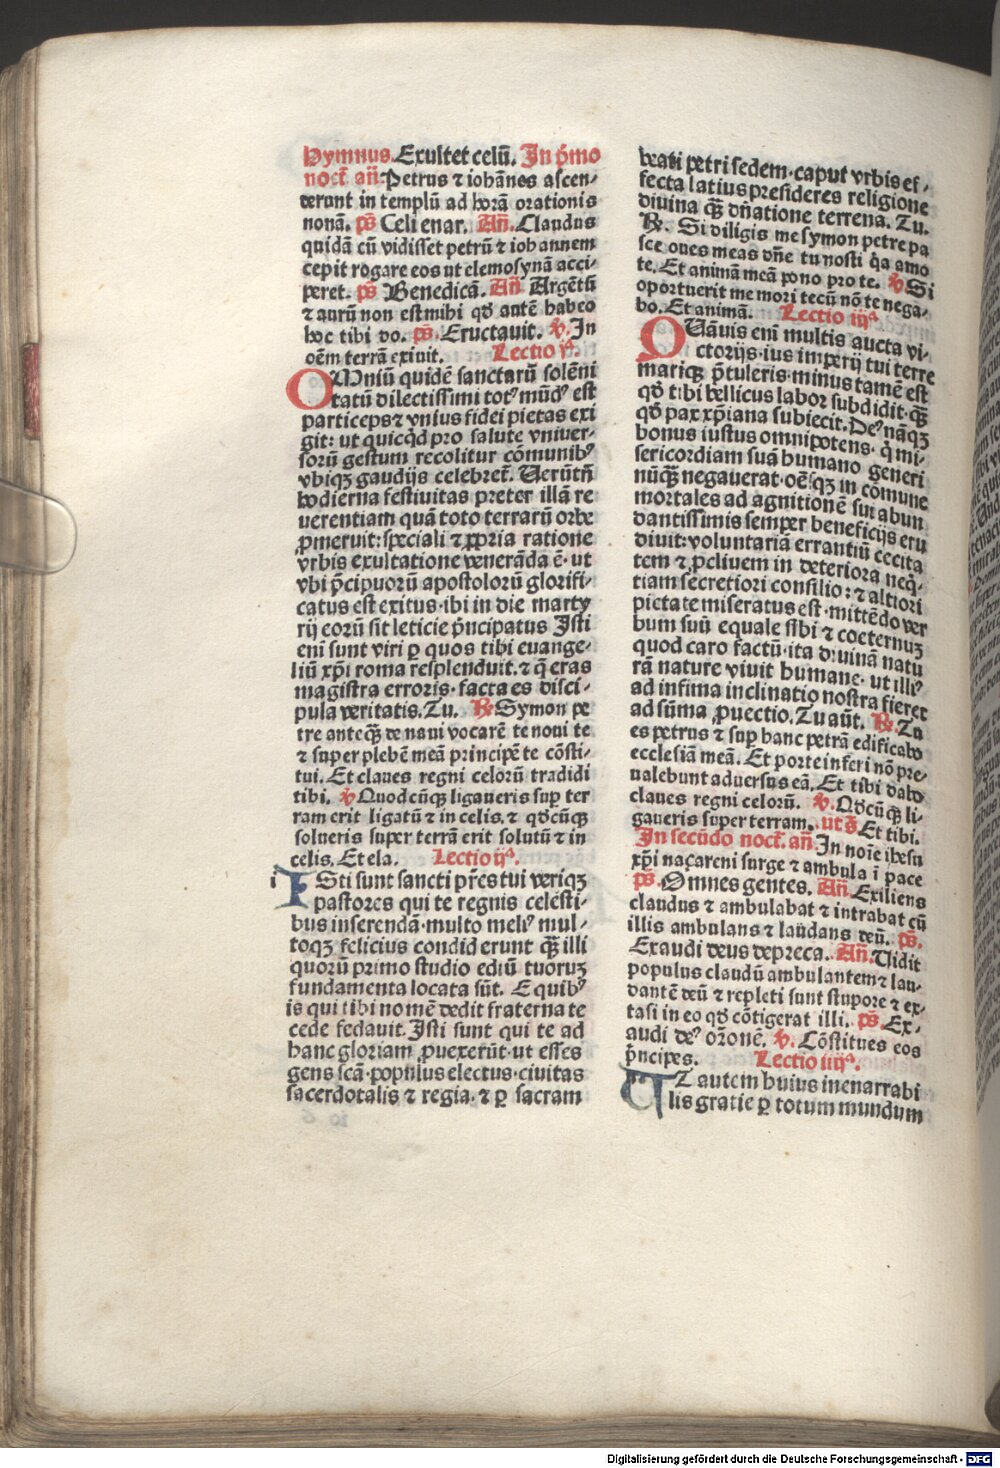 Hymnus. Exultet celū. In p̄mo
noct̄ añ. Petrus ⁊ iohānes ascen⸗
derunt in templū ad horā orationis
nonā. p̄s Celi enar. Añ. Claudus
quidā cū vidisset petrū ⁊ iohannem
cepit rogare eos ut elemosynā acci⸗
peret. p̄s Benedicā. Añ Argētū
⁊ aurū non est mihi qd̄ autē habeo
hoc tibi do. p̄s. Eructauit. ℣. In
oēm terrā exiuit. Lectio jᵃ.
OMniū quidē sanctarū solēni
tatū dilectissimi totꝰ mūdꝰ est
particeps ⁊ vnius fidei pietas exi
git: ut quicq̄d pro salute vniuer⸗
sorū gestum recolitur cōmunibꝰ
vbiqꝫ gaudijs celebret̄. Uerūtñ
hodierna festiuitas preter illā re
uerentiam quā toto terrarū orbe
ꝓmeruit: speciali ⁊ ꝓpria ratione
vrbis exultatione venerāda ē· ut
vbi p̄cipuorū apostolorū glorifi⸗
catus est exitus· ibi in die marty
rij eorū sit leticie p̄ncipatus Isti
eni̅ sunt viri ꝑ quos tibi euange⸗
liū xp̄i roma resplenduit. ⁊ q̄ eras
magistra erroris· facta es disci⸗
pula veritatis. Tu. ℟ Symon pe
tre anteqꝫ̄ de naui vocarē te noui te
⁊ super plebē meā principē te cōsti⸗
tui. Et claues regni celorū tradidi
tibi. ℣ Quodcūqꝫ ligaueris sup̄ ter
ram erit ligatū ⁊ in celis. ⁊ qd̄cūqꝫ
solueris super terrā erit solutū ⁊ in
celis. Et cla. Lectio ijᵃ.
i ISti sunt sancti pr̄es tui veriqꝫ
pastores qui te regnis celesti⸗
bus inserendā· multo meliꝰ mul⸗
toqꝫ felicius condiderunt qꝫ̄ illi
quorū primo studio ediū tuoruꝫ
fundamenta locata sūt. E quibꝰ
is qui tibi nomē dedit fraterna te
cede fedauit. Isti sunt qui te ad
hanc gloriam ꝓuexerūt· ut esses
gens scā· populus electus· ciuitas
sacerdotalis ⁊ regia· ⁊ ꝑ sacram
beati petri sedem· caput vrbis ef⸗
fecta latius presideres religione
diuina qꝫ̄ dn̄atione terrena. Tu.
℟. Si diligis me symon petre pa
sce oues meas dn̄e tu nosti q̄a amo
te. Et animā meā pono pro te. ℣ Si
oportuerit me mori tecū nō te nega⸗
bo. Et animā. Lectio iijᵃ
QUāuis eni̅ multis aucta vi⸗
ctorijs· ius imperij tui terre
mariqꝫ p̄tuleris· minus tamē est
qd̄ tibi bellicus labor subdidit· qꝫ̄
qd̄ pax xp̄iana subiecit. Deꝰ nāqꝫ
bonus iustus omnipotens· q̄ mi⸗
sericordiam suā humano generi
nūqꝫ̄ negauerat· oēsqꝫ in cōmune
mortales ad agnitionē sui abun
dantissimis semper beneficijs eru
diuit: voluntariā errantiū cecita
tem ⁊ ꝓcliuem in deteriora neq̄⸗
tiam secretiori consilio: ⁊ altiori
pietate miseratus est· mittēdo ver
bum suū equale sibi ⁊ coeternuꝫ
quod caro factū· ita diuinā natu
rā nature viuit humane· ut illiꝰ
ad infima inclinatio nostra fieret
ad sūma ꝓuectio. Tu aūt. ℟. Tu
es petrus ⁊ sup̄ hanc petrā edificabo
ecclesiā meā. Et porte inferi nō pre⸗
ualebunt aduersus eā. Et tibi dabo
claues regni celorū. ℣. Qd̄cūqꝫ li⸗
gaueris super terram. ut s̄ Et tibi.
In secūdo noct̄. añ. In noīe ihesu
xp̄i naçareni surge ⁊ ambula ī pace
p̄s. Omnes gentes. Añ Exiliens
claudus ⁊ ambulabat ⁊ intrabat cū
illis ambulans ⁊ laudans deū. p̄s.
Exaudi deus depreca. Añ. Uidit
populus claudū ambulantem ⁊ lau⸗
dantē deū ⁊ repleti sunt stupore ⁊ ex⸗
tasi in eo qd̄ cōtigerat illi. p̄s Ex⸗
audi deꝰ orōnē. ℣. Cōstitues eos
p̄ncipes. Lectio iiijᵃ.
UT autem huius inenarrabi
lis gratie ꝑ totum mundum
Digitalisierung gefördert durch die Deutsche Forschungsgemeinschaft - DFG